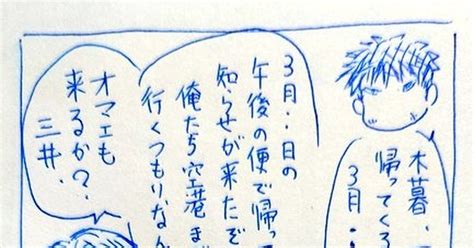 木暮、
帰ってくる
3月・・
3月・・日の
午後の便で帰っ
知らせが来たぞ
俺たち空港ま
行くつもりなん
オマエも
来るか?
三井.